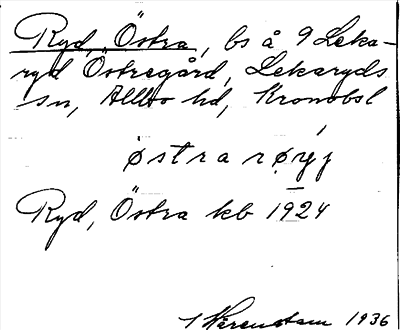 Ryd, Östra, bs å 9 Leka-
ryd Östregård, Lekaryds
sn, Allbo hd, Kronobsl
Ryd, Östra kb 1924
1936